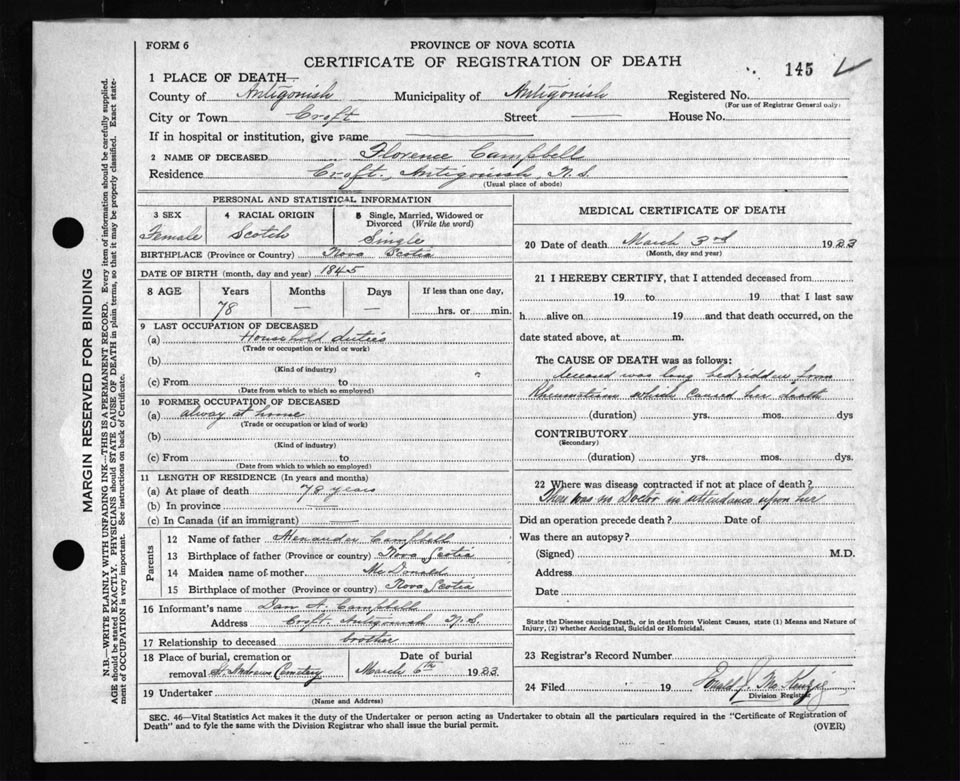 FORM 6
PROVINCE OF NOVA SCOTIA
CERTIFICATE OF REGISTRATION OF DEATH
145
1 PLACE OF DEATH—
County of Antigonish Municipality of Antigonish Registered No.
(For use of Registrar General only)
City or Town Croft Street — House No.
If in hospital or institution, give name
2 NAME OF DECEASED Florence Campbell
Residence Croft, Antigonish, N.S.
(Usual place of abode)
PERSONAL AND STATISTICAL INFORMATION
3 SEX 4 RACIAL ORIGIN 5 Single, Married, Widowed or Divorced (Write the word)
Female Scotch Single
BIRTHPLACE (Province or Country) Nova Scotia
DATE OF BIRTH (month, day and year) 1845
8 AGE Years Months Days If less than one day,
78 — — hrs. or min.
9 LAST OCCUPATION OF DECEASED
(a) Household duties
(Trade or occupation or kind or work)
(b)
(Kind of industry)
(c) From to
(Date from which to which so employed)
10 FORMER OCCUPATION OF DECEASED
(a) alway at home
(Trade or occupation or kind of work)
(b)
(Kind of industry)
(c) From to
(Date from which to which so employed)
11 LENGTH OF RESIDENCE (In years and months)
(a) At place of death 78 years
(b) In province —
(c) In Canada (if an immigrant) —
Parents
12 Name of father Alexander Campbell
13 Birthplace of father (Province or country) Nova Scotia
14 Maiden name of mother McDonald
15 Birthplace of mother (Province or country) Nova Scotia
16 Informant's name Dan A. Campbell
Address Croft Antigonish N.S.
17 Relationship to deceased brother
18 Place of burial, cremation or removal St. Andrews Cemetery
Date of burial
March 6th 1923
19 Undertaker
(Name and Address)
MEDICAL CERTIFICATE OF DEATH
20 Date of death March 3rd 1923
(Month, day and year)
21 I HEREBY CERTIFY, that I attended deceased from
19 to 19 that I last saw
h alive on 19 and that death occurred, on the
date stated above, at m.
The CAUSE OF DEATH was as follows:
deceased was long bedridden from
Rheumatism which caused her death
(duration) yrs. mos. dys
CONTRIBUTORY
(Secondary)
(duration) yrs. mos. dys.
22 Where was disease contracted if not at place of death?
There was no Doctor in attendance upon her
Did an operation precede death? Date of
Was there an autopsy?
(Signed) M.D.
Address
Date
State the Disease causing Death, or in death from Violent Causes, state (1) Means and Nature of
Injury, (2) whether Accidental, Suicidal or Homicidal.
23 Registrar's Record Number
24 Filed 19 J. McKenzie
Division Registrar
SEC. 46—Vital Statistics Act makes it the duty of the Undertaker or person acting as Undertaker to obtain all the particulars required in the "Certificate of Registration of
Death" and to fyle the same with the Division Registrar who shall issue the burial permit.
(OVER)
MARGIN RESERVED FOR BINDING
N.B.—WRITE PLAINLY WITH UNFADING INK—THIS IS A PERMANENT RECORD. Every item of information should be carefully supplied.
AGE should be stated EXACTLY. PHYSICIANS should STATE CAUSE OF DEATH in plain terms, so that it may be properly classified. Exact state-
ment of OCCUPATION is very important. See instructions on back of Certificate.